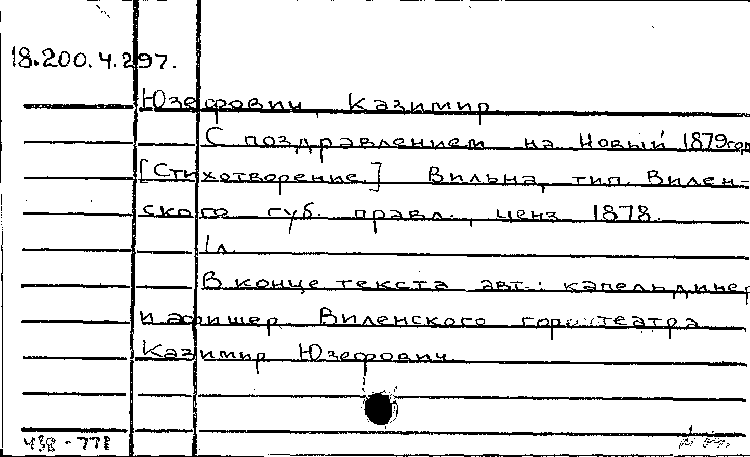 18.200.4.297.
Юзефович, Казимир.
С поздравлением на Новый 1879 год
[Стихотворение.] Вильна, тип. Вилен-
ского губ. правл., ценз. 1878.
1 л.
В конце текста авт.: капельдинер
и афишер Виленского гор. театра
Казимир Юзефович.
438-778